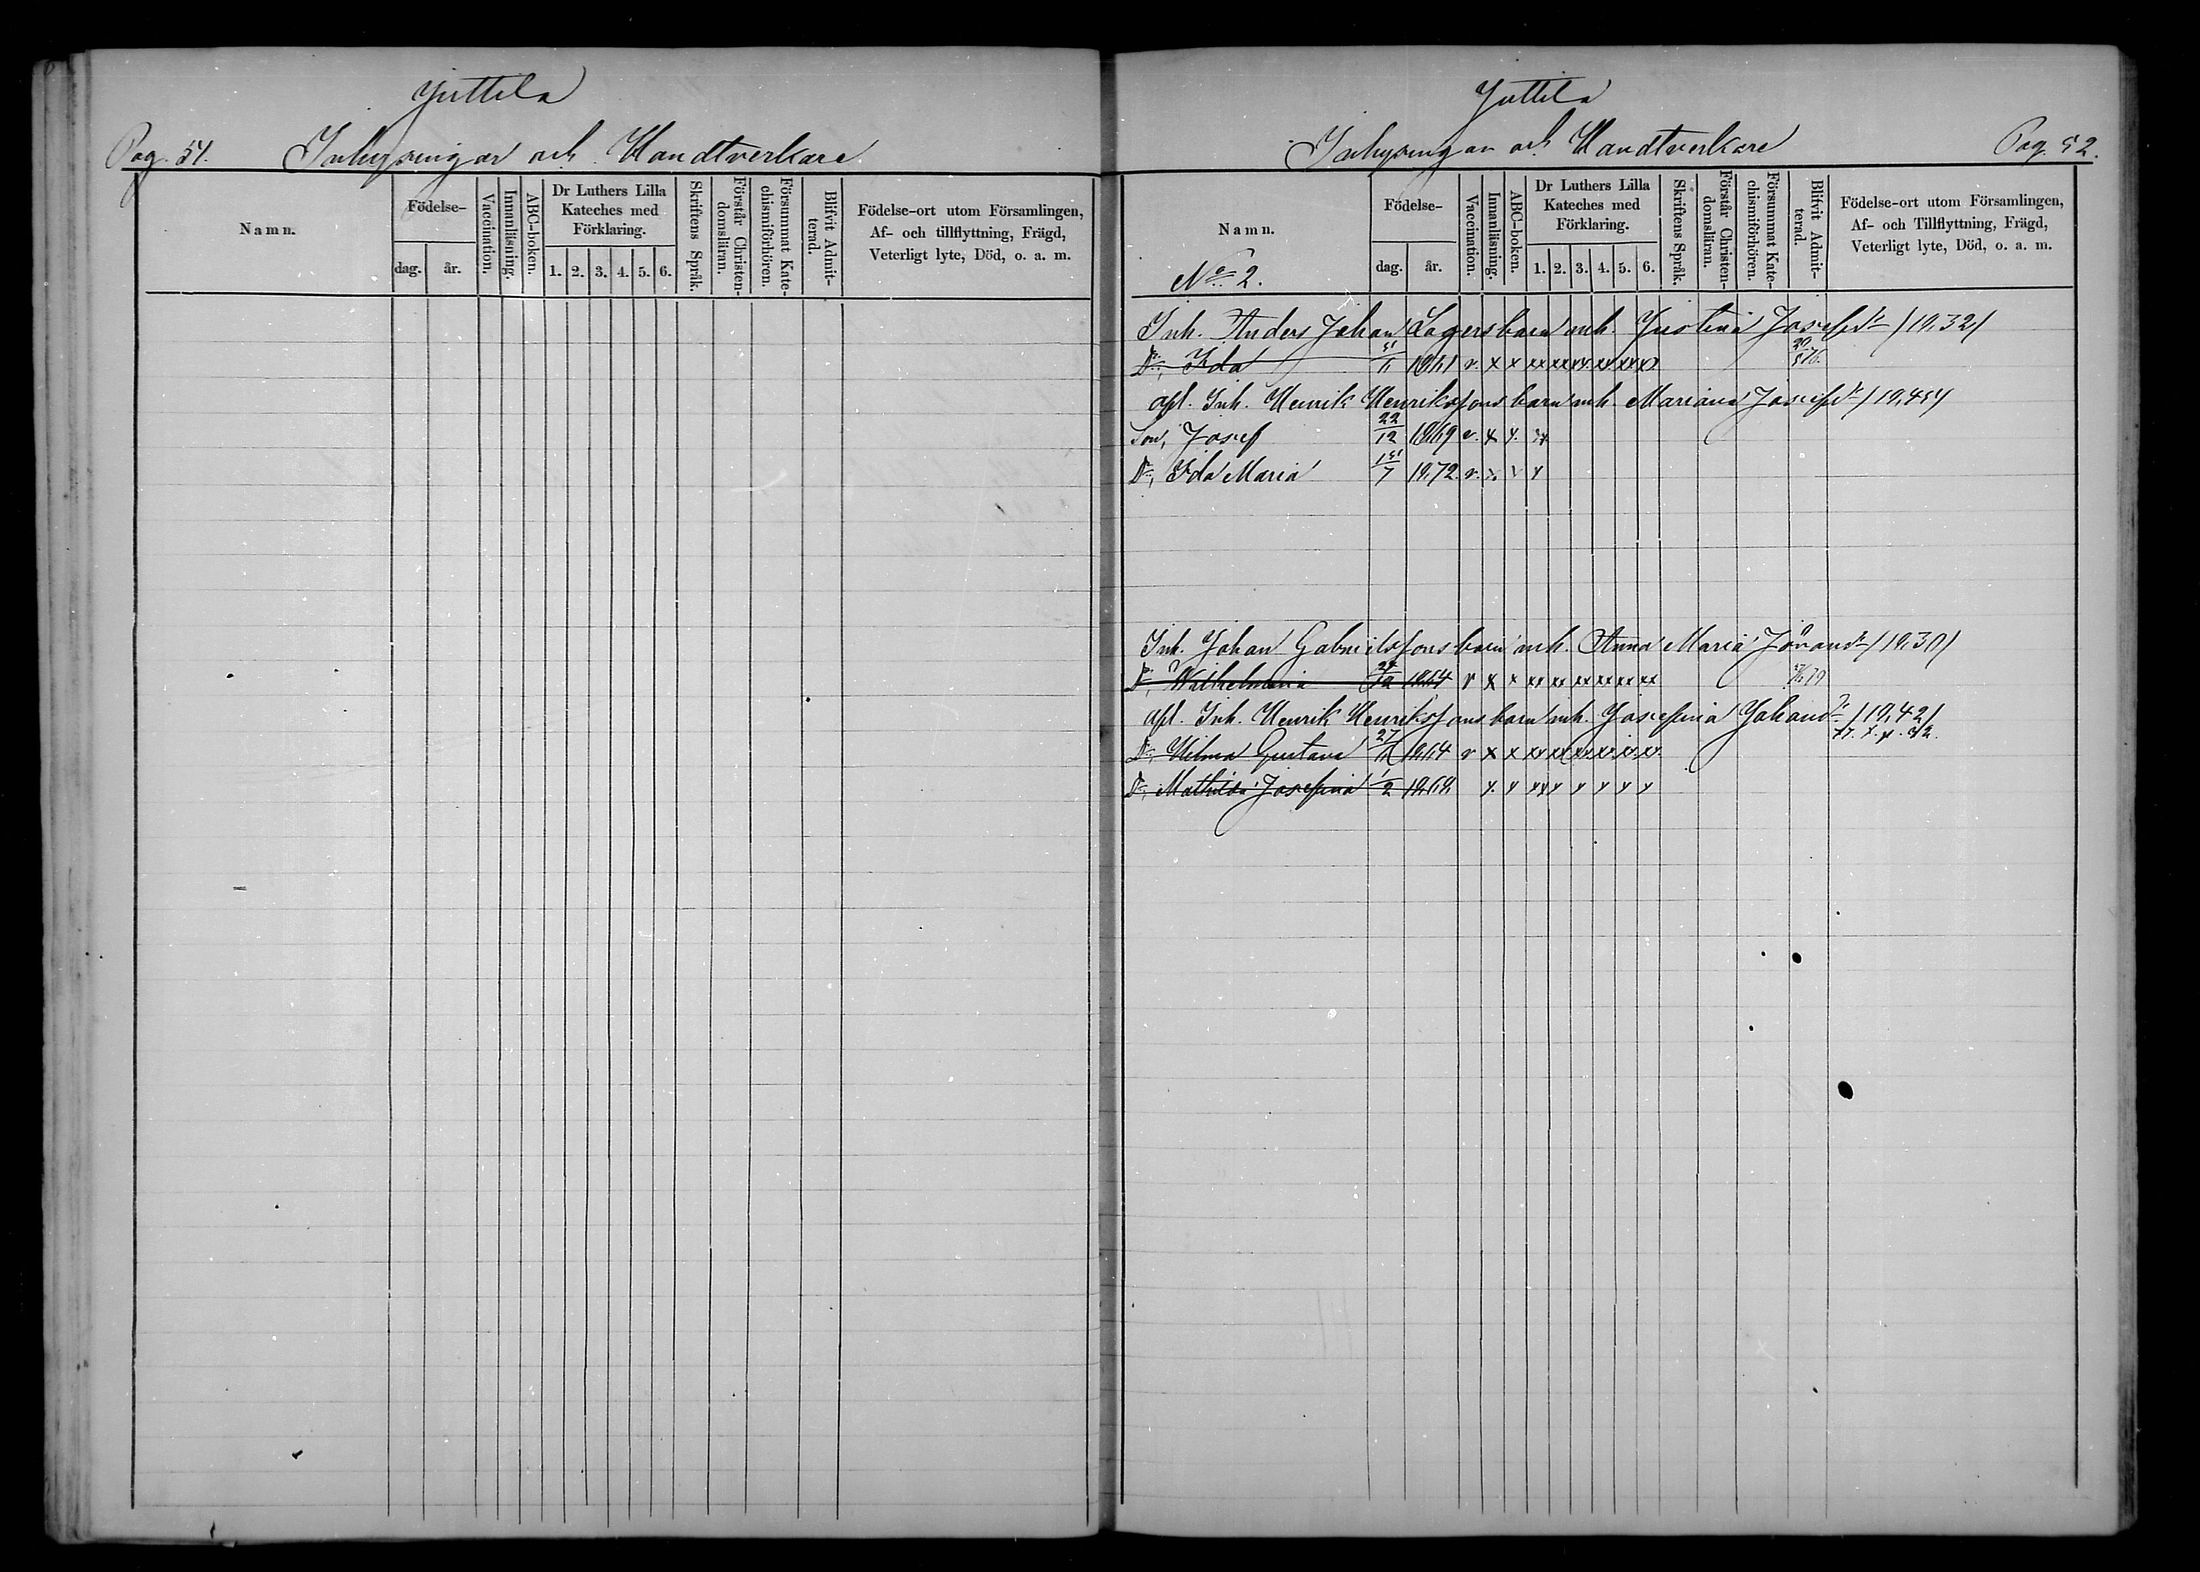 Juttila
Pag. 51. Inhysingar och Handtverkare.
Namn.
Födelse-
dag. år.
Vaccination.
Innanläsning.
ABC-boken.
Dr Luthers Lilla
Kateches med
Förklaring.
1. 2. 3. 4. 5. 6.
Skriftens Språk.
Förstår Christen-
domsläran.
Försummat Kate-
chismiförhören.
Blifvit Admit-
terad.
Födelse-ort utom Församlingen,
Af- och tillflyttning, Frägd,
Veterligt lyte, Död, o. a. m.
Juttila
Inhysingar och Handtverkare Pag. 52.
Namn.
No 2.
Födelse-
dag. år.
Vaccination.
Innanläsning.
ABC-boken.
Dr Luthers Lilla
Kateches med
Förklaring.
1. 2. 3. 4. 5. 6.
Skriftens Språk.
Förstår Christen-
domsläran.
Försummat Kate-
chismiförhören.
Blifvit Admit-
terad.
Födelse-ort utom Församlingen,
Af- och Tillflyttning, Frägd,
Veterligt lyte, Död, o. a. m.
Inh. Anders Johan Lagers barn m h. Justina Josefsd:r /18,32/
D:r, Ida 1861 v. x x xx xx xx xx xx xx
afl. Inh. Henrik Henrikssons barn m h. Mariana Josefsd:r /18,45/
Son, Josef 22/12 1869 v. x x. x
D:r, Ida Maria 15/7 1872. v. x x x
Inh. Johan Gabrielssons barn m h. Anna Maria Jöransd:r /18,30/
D:r, Wilhelmina 1864 v x x xx xx xx xx xx xx
afl. Inh. Henrik Henrikssons barn m h. Josefina Johansd:r /18,42/
D:r, Hilma Gustava 1864 v x x xx xx xx xx xx xx
D:r, Mathilda Josefina 1/2 1868 x x xx x x x x x